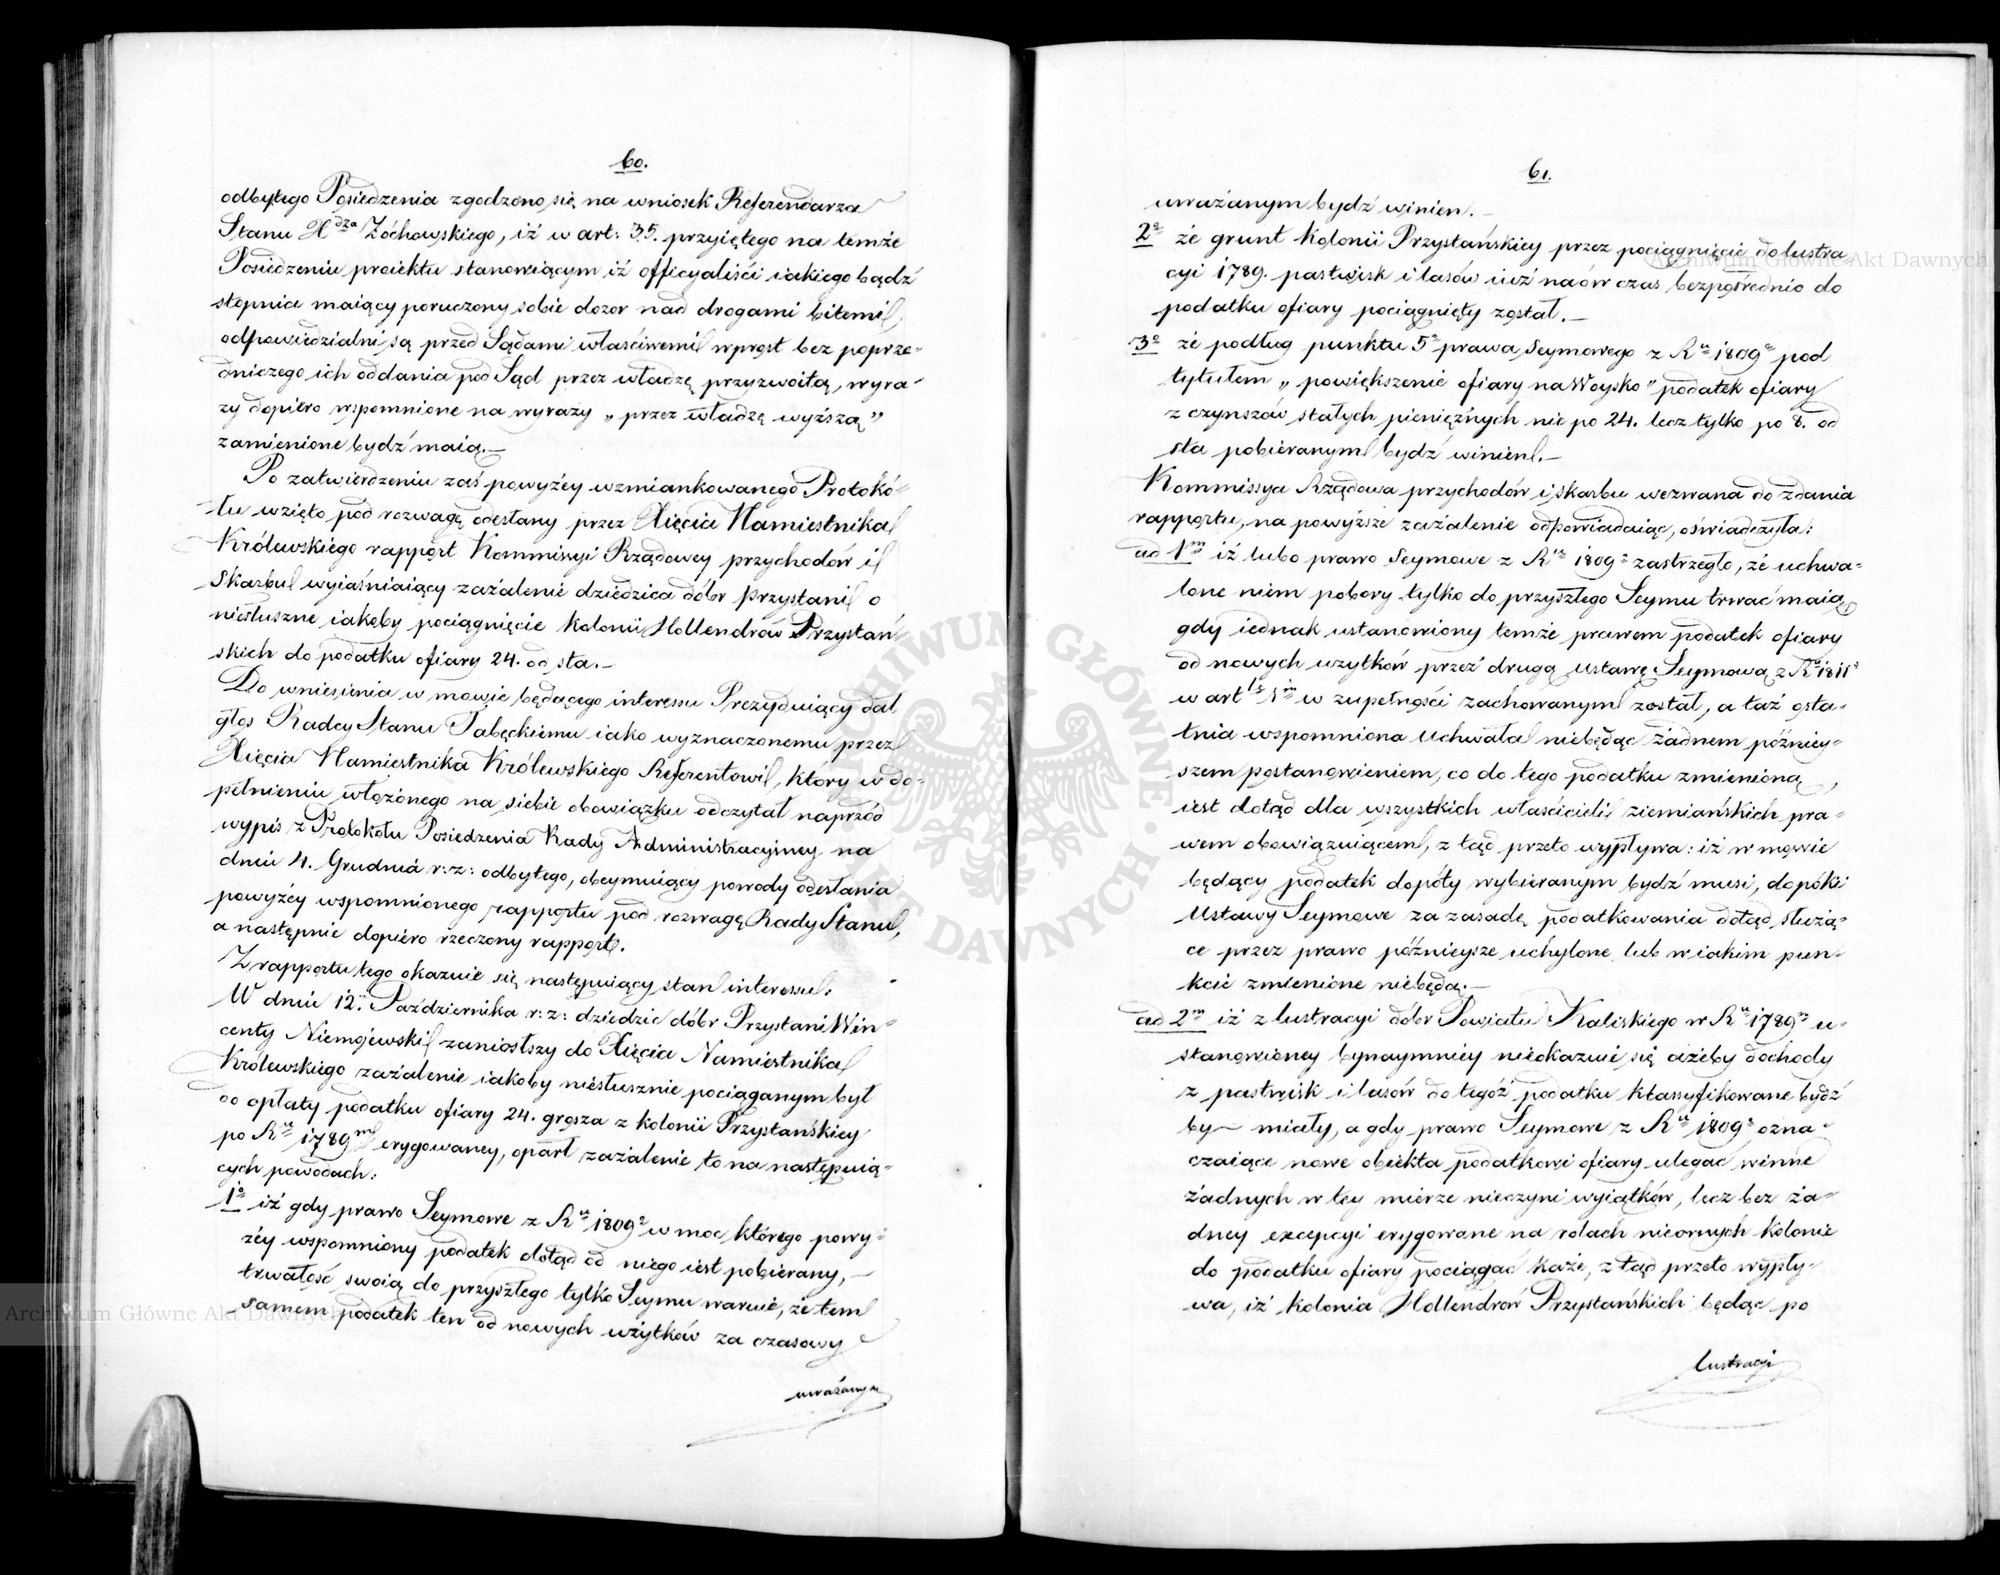 60.
odbytego Posiedzenia zgodzono się na wniosek Referendarza
Stanu Xdza Zóchowskiego, iż w art: 35. przyiętego na temże
Posiedzeniu proiektu stanowiącym iż officyaliści iakiego bądź
stopnia maiący poruczony sobie dozor nad drogami bitemi,
odpowiedzialni są przed Sądami właściwemi wprost bez poprze-
dniczego ich oddania pod Sąd przez władzę przyzwoitą, wyra-
zy dopiero wspomnione na wyrazy „przez władzę wyższą”
zamienione bydź maią.—
Po zatwierdzeniu zaś powyżey wzmiankowanego Protokó-
łu wzięto pod rozwagę odesłany przez Xięcia Namiestnika
Królewskiego rapport Kommissyi Rządowey przychodów i
Skarbu wyiaśniaiący zażalenie dziedzica dóbr Przystani o
niesłuszne iakoby pociągnięcie kolonii Hollendrów Przystań-
skich do podatku ofiary 24. od sta.—
Do wniesienia w mowie będącego interessu Prezyduiący dał
głos Radcy Stanu Tabęckiemu iako wyznaczonemu przez
Xięcia Namiestnika Królewskiego Referentowi, który w do-
pełnieniu włożonego na siebie obowiązku odczytał naprzód
wypis z Protokołu Posiedzenia Rady Administracyiney na
dniu 4. Grudnia r: z: odbytego, obeymuiący powody odesłania
powyżey wspomnionego rapportu pod rozwagę Rady Stanu,
a następnie dopiero rzeczony rapport.
Z rapportu tego okazuie się następuiący stan interessu.
W dniu 12. Października r: z: dziedzic dóbr Przystani Win-
centy Niemojewski zaniosłszy do Xięcia Namiestnika
Królewskiego zażalenie iakoby niesłusznie pociąganym był
do opłaty podatku ofiary 24. grosza z kolonii Przystańskiey
po Ru 1789m erygowaney, oparł zażalenie to na następuią-
cych powodach:
1o iż gdy prawo Seymowe z Ru 1809o w moc którego powy-
żey wspomniony podatek dotąd od niego iest pobierany,—
trwałość swoią do przyszłego tylko Seymu waruie, że tem
samem podatek ten od nowych użytków za czasowy
uważanym
61.
uważanym bydź winien.—
2o że grunt kolonii Przystańskiey przez pociągnięcie do lustra
cyi 1789. pastwisk i lasów iuż naów czas bezpośrednio do
podatku ofiary pociągnięty został.—
3o że podług punktu 5o prawa Seymowego z Ru 1809o pod
tytułem „powiększenie ofiary na Woysko” podatek ofiary
z czynszów stałych pieniężnych nie po 24. lecz tylko po 8. od
sta pobieranym bydź winien.—
Kommissya Rządowa przychodów i skarbu wezwana do zdania
rapportu, na powyższe zażalenie odpowiadaiąc, oświadczyła:
ad 1m iż lubo prawo Seymowe z Ru 1809o zastrzegło, że uchwa-
lone niem pobory tylko do przyszłego Seymu trwać maią,
gdy iednak ustanowiony temże prawem podatek ofiary
od nowych użytków przez drugą ustawę Seymową z Ru 1811o
w art 1m w zupełności zachowanym został, a taż osta-
tnia wspomniona Uchwała niebędąc żadnem późniey-
szem postanowieniem, co do tego podatku zmienioną,
iest dotąd dla wszystkich właścicieli ziemiańskich pra-
wem obowiązuiącem, z tąd przeto wypływa: iż w mowie
będący podatek dopóty wybieranym bydź musi, dopóki
Ustawy Seymowe za zasadę podatkowania dotąd służą-
ce przez prawo późnieysze uchylone lub w iakim pun-
kcie zmienione niebędą.—
ad 2m iż z lustracyi dóbr Powiatu Kaliskiego w Ru 1789m u-
stanowioney bynaymniey nieokazuie się ażeby dochody
z pastwisk i lasów do tegoż podatku klassyfikowane bydź
by— miały, a gdy prawo Seymowe z Ru 1809o ozna-
czaiące nowe obiekta podatkowi ofiary ulegać winne
żadnych w tey mierze nieczyni wyiątków, lecz bez ża-
dney excepcyi erygowane na rolach nieornych kolonie
do podatku ofiary pociągać każe, z tąd przeto wypły-
wa, iż kolonia Hollendrów Przystańskich będąc po
lustracyi
Archiwum Główne Akt Dawnych
Archiwum Główne Akt Dawnych
ARCHIWUM GŁÓWNE AKT DAWNYCH